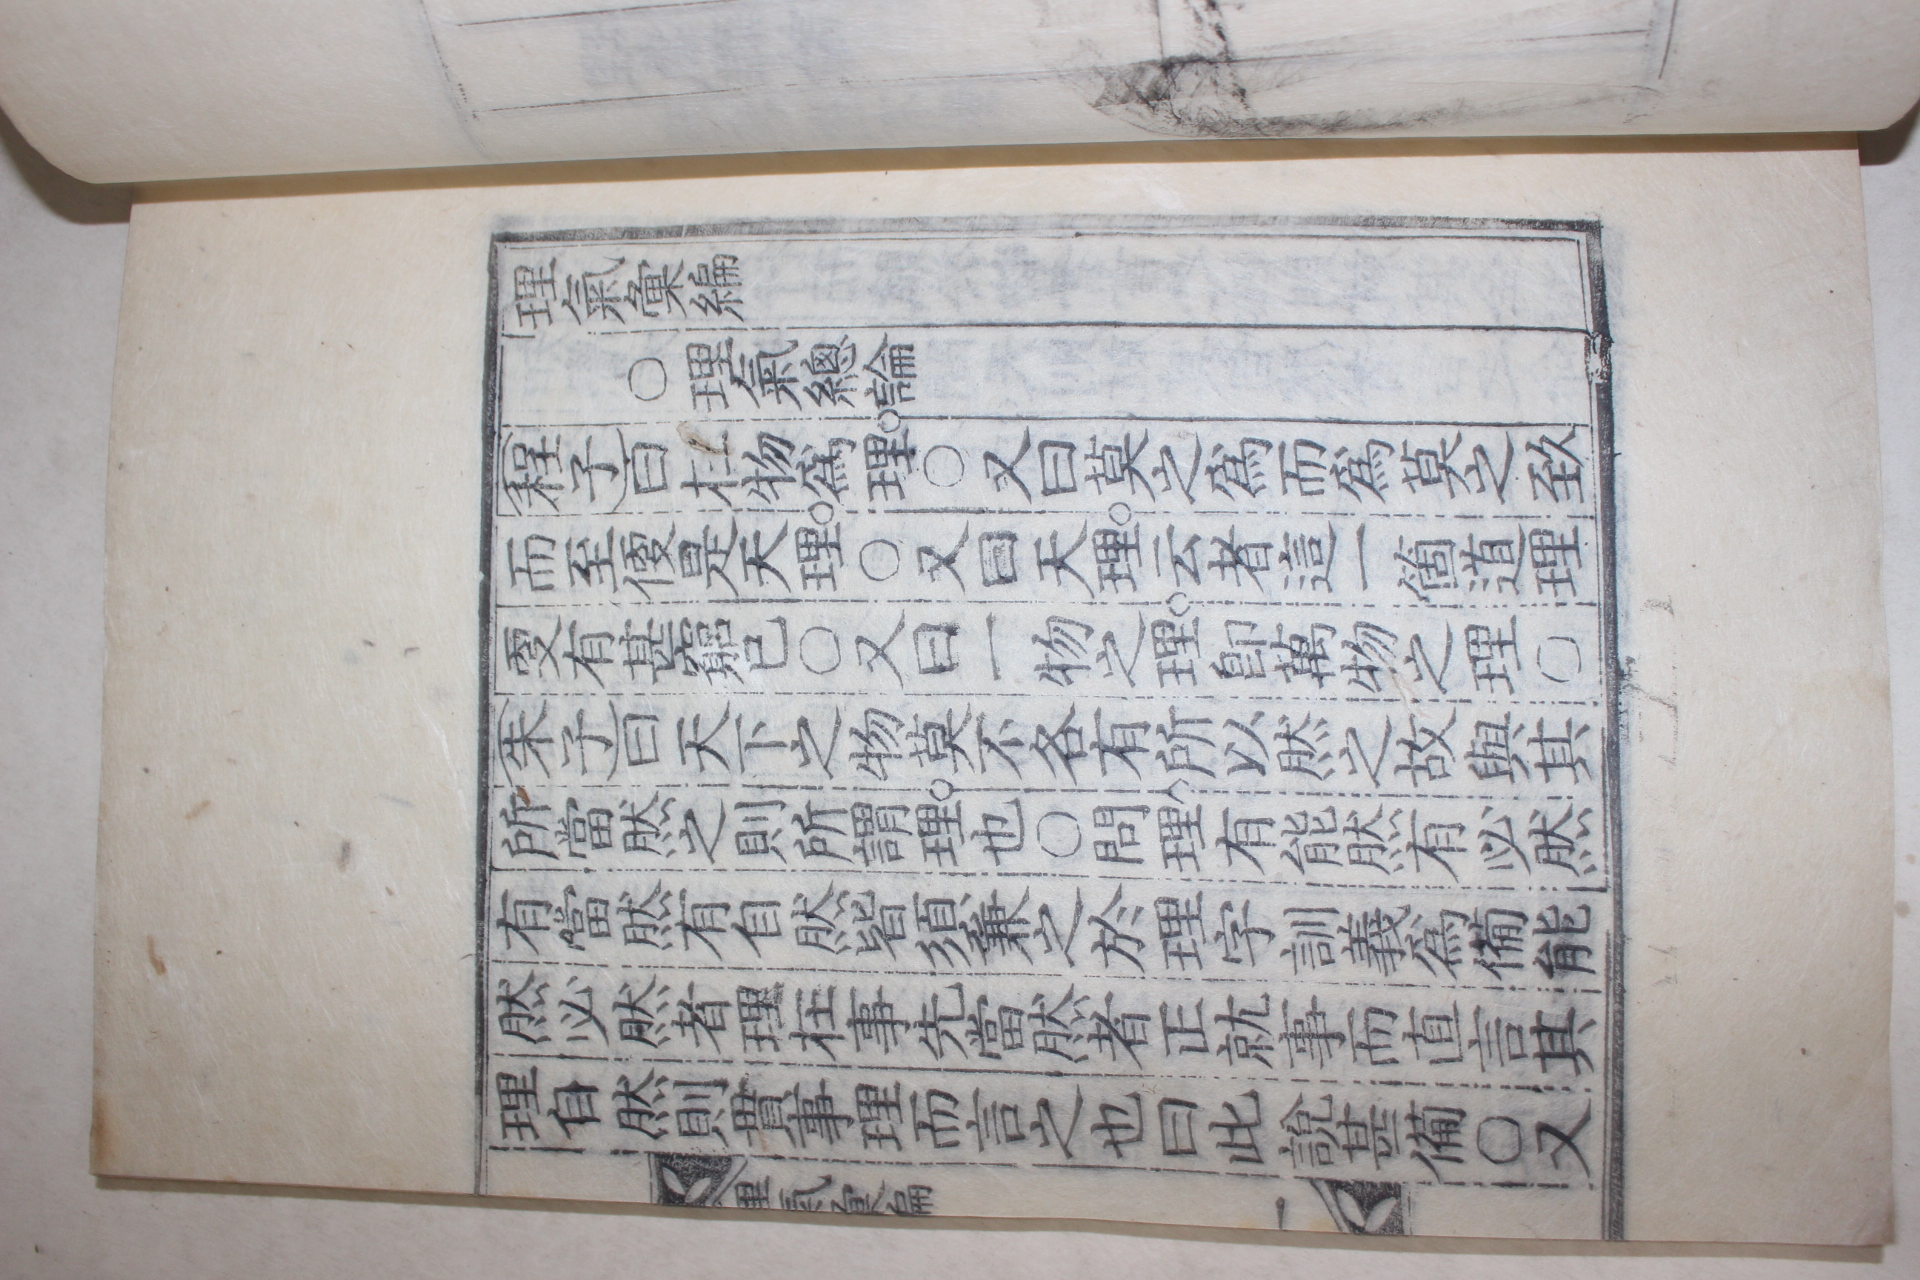 理氣彙編
○理氣總論
(程子)曰在物爲理○又曰莫之爲而爲莫之致
而至便是天理○又曰天理云者這一箇道理
更有甚窮已○又曰一物之理卽萬物之理○
(朱子)曰天下之物莫不各有所以然之故與其
所當然之則所謂理也○問理有能然有必然
有當然有自然皆須兼之於理字訓義爲備能
然必然者理在事先當然者正就事而直言其
理自然則貫事理而言之也曰此說甚備○又
理氣彙編
一